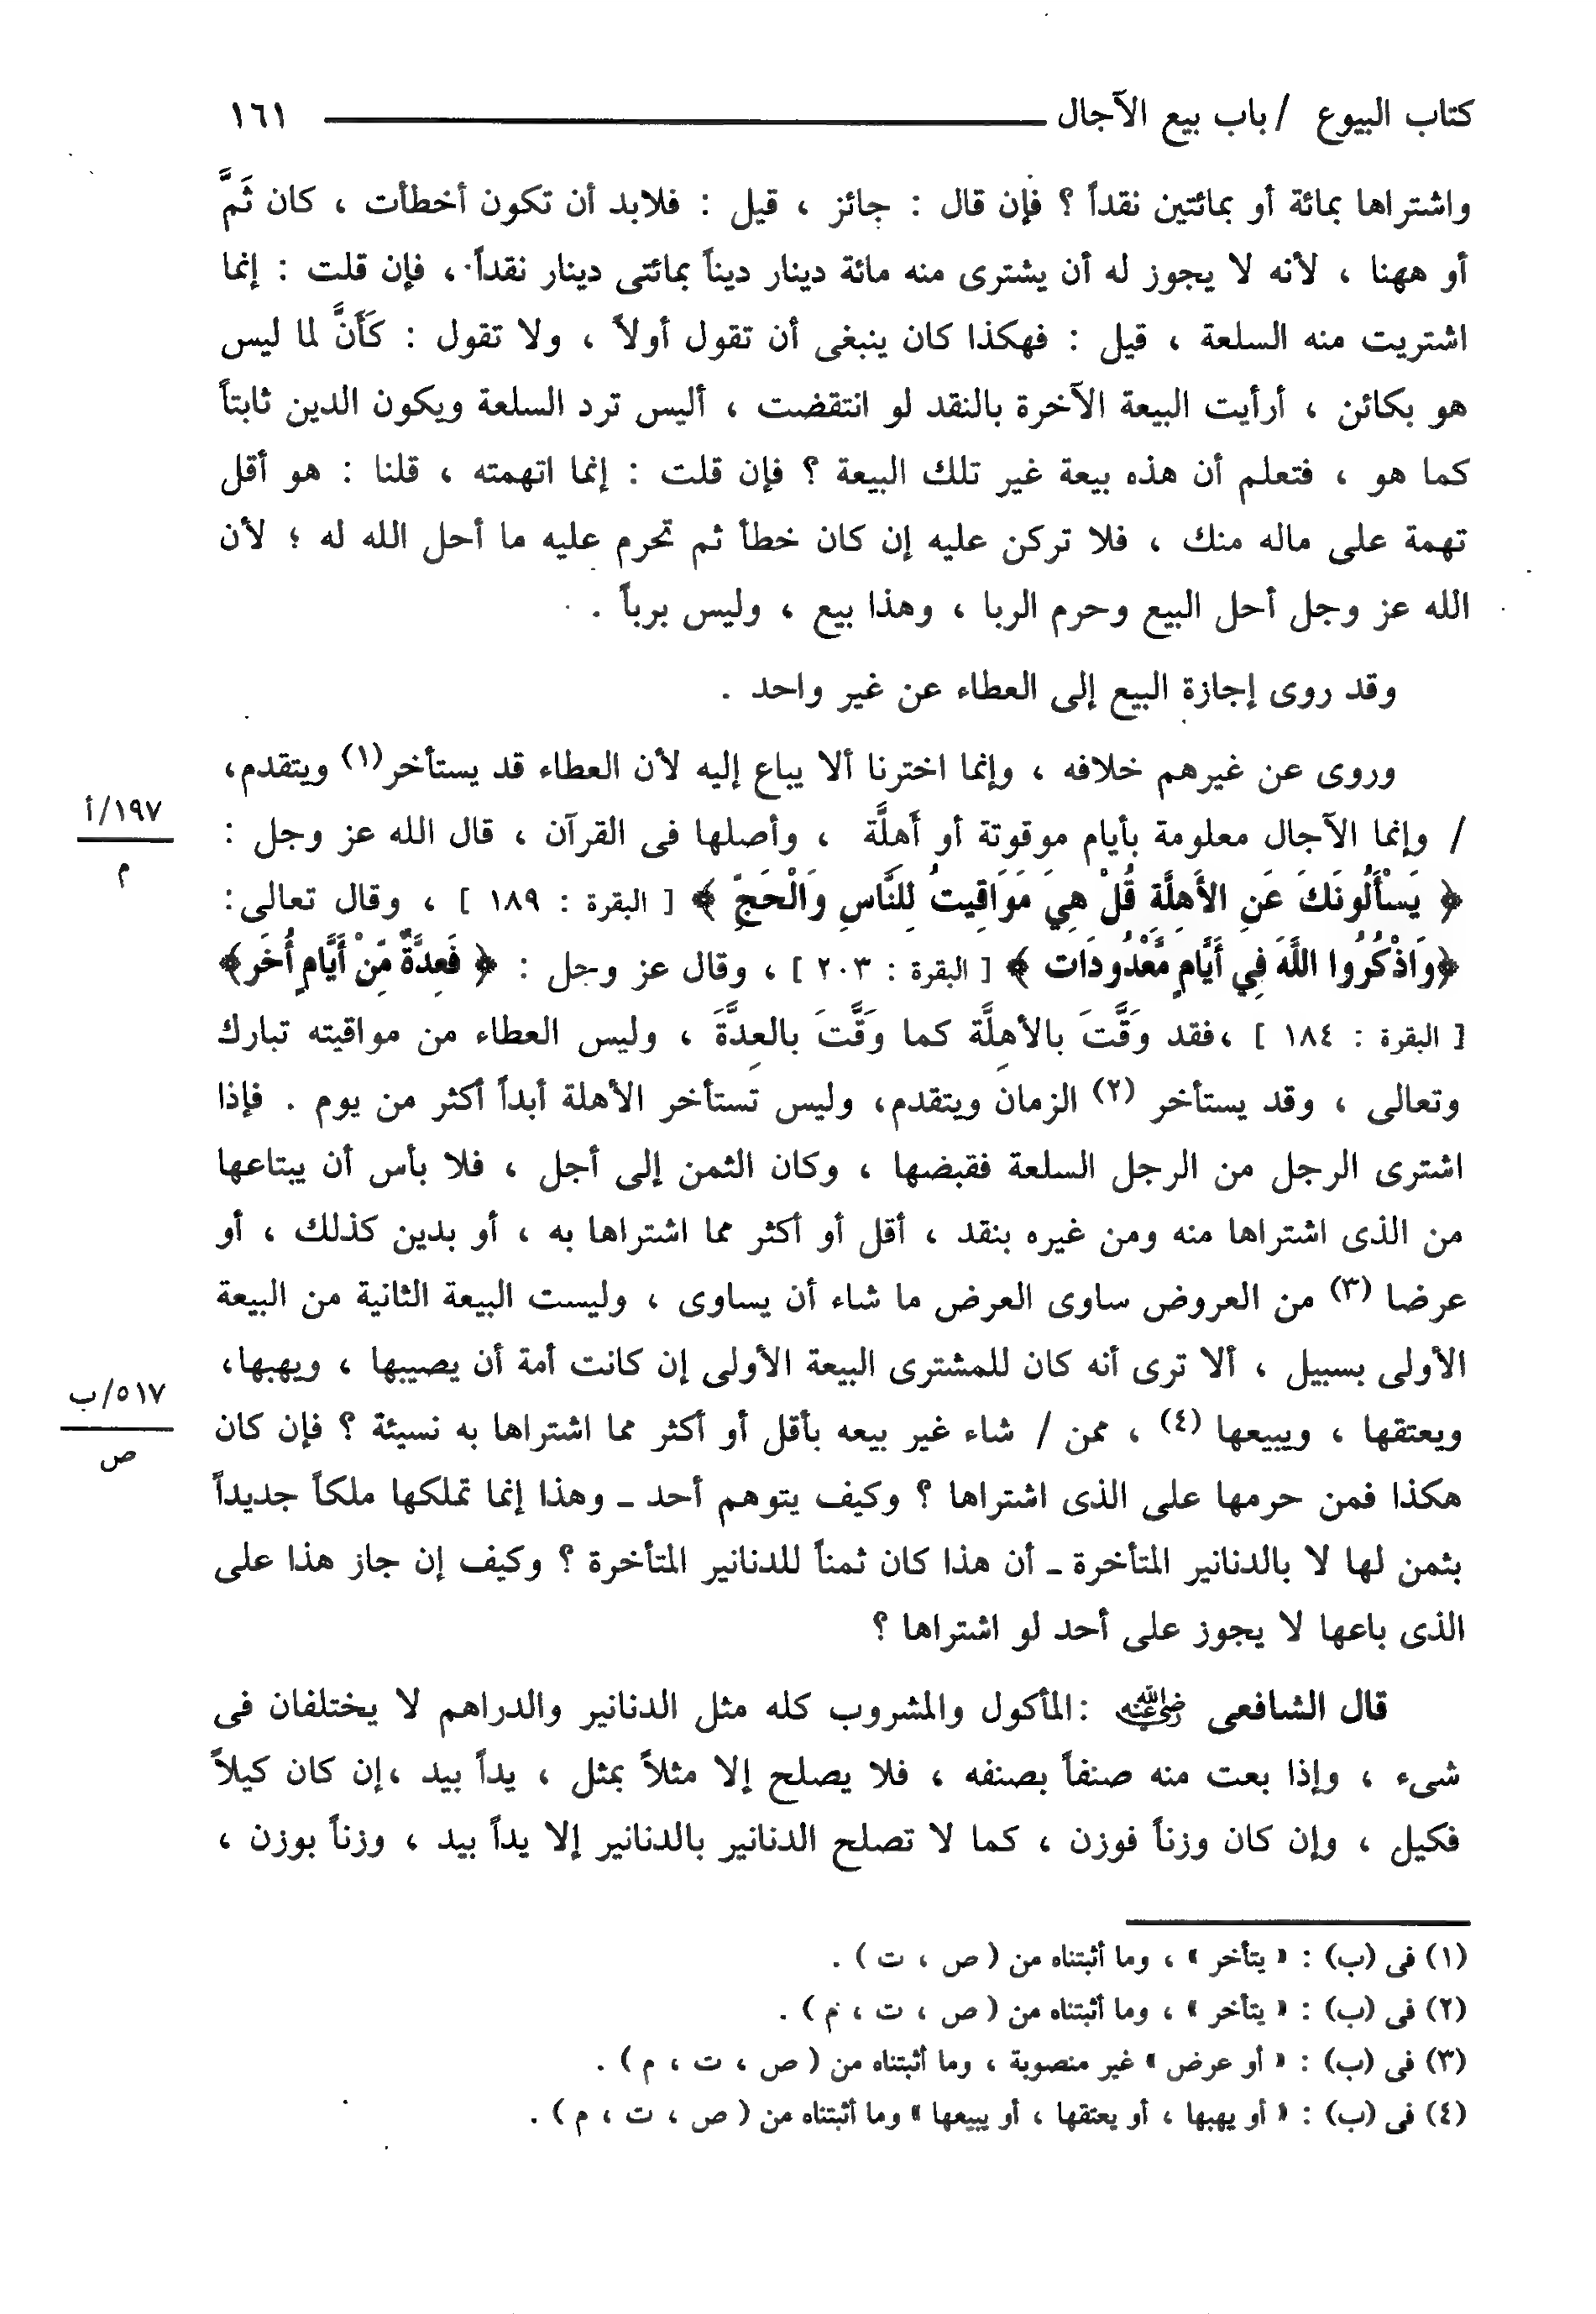 كتاب البيوع / باب بيع الآجال ١٦١
واشتراها بمائة أو بمائتين نقداً ؟ فإن قال : جائز ، قيل : فلابد أن تكون أخطأت ، كان ثَمَّ
أو ههنا ، لأنه لا يجوز له أن يشترى منه مائة دينار ديناً بمائتى دينار نقداً ، فإن قلت : إنما
اشتريت منه السلعة ، قيل : فهكذا كان ينبغى أن تقول أولاً ، ولا تقول : كَأَنَّ لما ليس
هو بكائن ، أرأيت البيعة الآخرة بالنقد لو انتقضت ، أليس ترد السلعة ويكون الدين ثابتاً
كما هو ، فتعلم أن هذه بيعة غير تلك البيعة ؟ فإن قلت : إنما اتهمته ، قلنا : هو أقل
تهمة على ماله منك ، فلا تركن عليه إن كان خطأ ثم تحرم عليه ما أحل الله له ؛ لأن
الله عز وجل أحل البيع وحرم الربا ، وهذا بيع ، وليس برباً .
وقد روى إجازة البيع إلى العطاء عن غير واحد .
وروى عن غيرهم خلافه ، وإنما اخترنا ألا يباع إليه لأن العطاء قد يستأخر(١) ويتقدم،
١٩٧/أ
م
/ وإنما الآجال معلومة بأيام موقوتة أو أَهلَّة ، وأصلها فى القرآن ، قال الله عز وجل :
﴿ يَسْأَلُونَكَ عَنِ الأَهِلَّةِ قُلْ هِيَ مَوَاقِيتُ لِلنَّاسِ وَالْحَجِّ ﴾ [ البقرة : ١٨٩ ] ، وقال تعالى:
﴿وَاذْكُرُوا اللَّهَ فِي أَيَّامٍ مَّعْدُودَات ﴾ [ البقرة : ٢٠٣ ] ، وقال عز وجل : ﴿ فَعِدَّةٌ مِّنْ أَيَّامٍ أُخَر﴾
[ البقرة : ١٨٤ ] ،فقد وَقَّتَ بالأهِلَّة كما وَقَّتَ بالعِدَّةَ ، وليس العطاء من مواقيته تبارك
وتعالى ، وقد يستأخر (٢) الزمان ويتقدم، وليس تستأخر الأهلة أبداً أكثر من يوم . فإذا
اشترى الرجل من الرجل السلعة فقبضها ، وكان الثمن إلى أجل ، فلا بأس أن يبتاعها
من الذى اشتراها منه ومن غيره بنقد ، أقل أو أكثر مما اشتراها به ، أو بدين كذلك ، أو
عرضا (٣) من العروض ساوى العرض ما شاء أن يساوى ، وليست البيعة الثانية من البيعة
الأولى بسبيل ، ألا ترى أنه كان للمشترى البيعة الأولى إن كانت أمة أن يصيبها ، ويهبها،
٥١٧/ب
ص
ويعتقها ، ويبيعها (٤) ، ممن / شاء غير بيعه بأقل أو أكثر مما اشتراها به نسيئة ؟ فإن كان
هكذا فمن حرمها على الذى اشتراها ؟ وكيف يتوهم أحد ـ وهذا إنما تملكها ملكاً جديداً
بثمن لها لا بالدنانير المتأخرة ـ أن هذا كان ثمناً للدنانير المتأخرة ؟ وكيف إن جاز هذا على
الذى باعها لا يجوز على أحد لو اشتراها ؟
قال الشافعى رضي الله عنه :المأكول والمشروب كله مثل الدنانير والدراهم لا يختلفان فى
شىء ، وإذا بعت منه صنفاً بصنفه ، فلا يصلح إلا مثلاً بمثل ، يداً بيد ،إن كان كيلاً
فكيل ، وإن كان وزناً فوزن ، كما لا تصلح الدنانير بالدنانير إلا يداً بيد ، وزناً بوزن ،
(١) فى (ب) : « يتأخر » ، وما أثبتناه من ( ص ، ت ) .
(٢) فى (ب) : « يتأخر » ، وما أثبتناه من ( ص ، ت ، م ) .
(٣) فى (ب) : « أو عرض » غير منصوبة ، وما أثبتناه من ( ص ، ت ، م ) .
(٤) فى (ب) : « أو يهبها ، أو يعتقها ، أو يبيعها » وما أثبتناه من ( ص ، ت ، م ) .